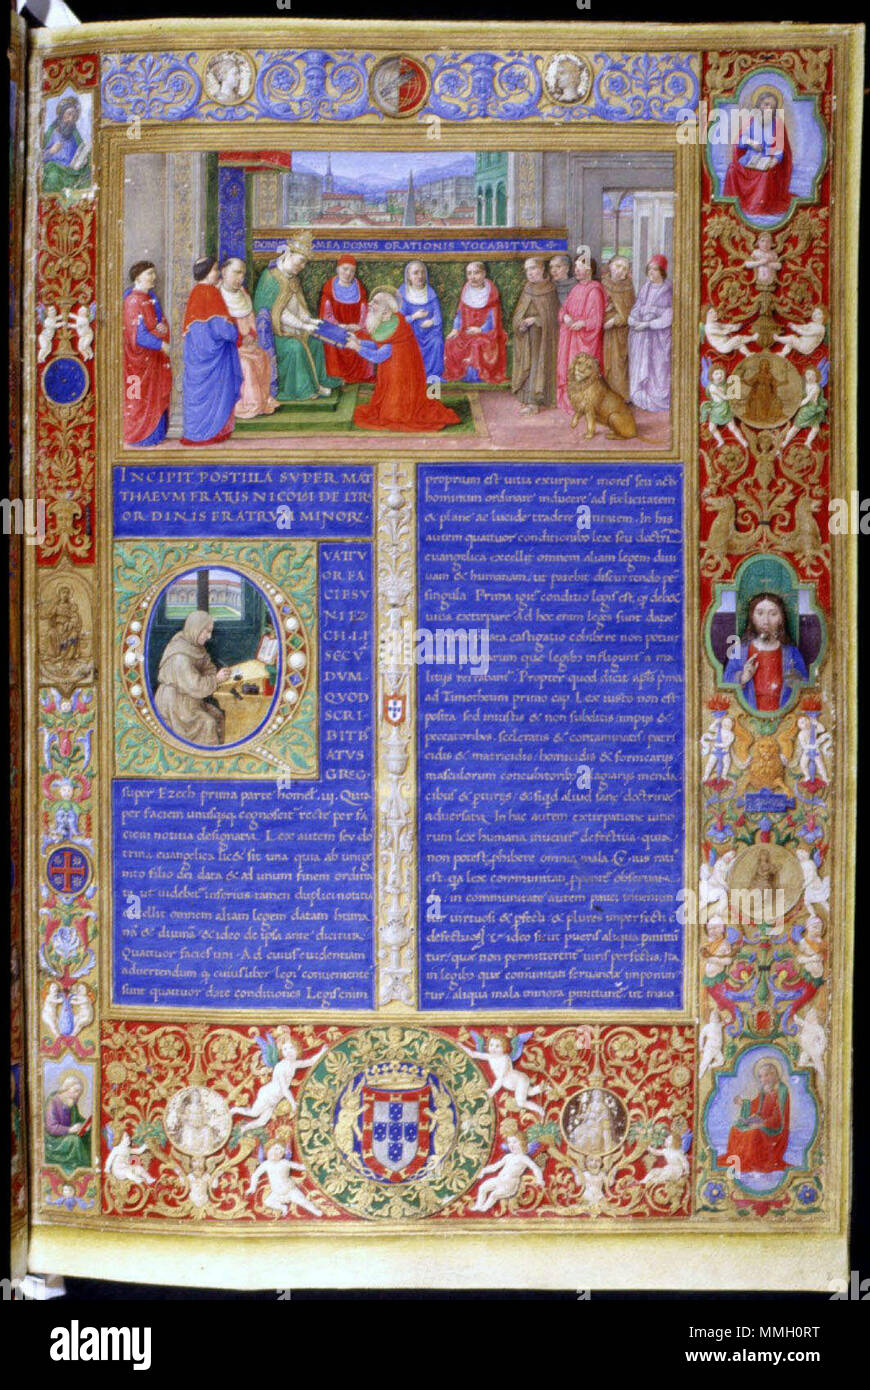 DOMUS MEA DOMUS ORATIONIS VOCABITUR
INCIPIT POSTILLA SVPER MAT
THAEVM FRATRIS NICOLAI DE LYR
ORDINIS FRATRVM MINORV
VATTV
OR FA
CIES V
NI EZ
CHI LI
SECV
DVM
QVOD
SCRI
BIT B
ATVS
GREG
super Ezech prima parte homel. iii. Quia
per faciem unusquisq; cognoscit recte per fa
ciem notitia designatur. Lex autem seu do
trina evangelica licet sit una quia ab unige
nito filio dei data & ad unum finem ordina
ta, ut videbitur inferius tamen duplici notitia
excellit omnem aliam legem datam humana
nam & divinam & ideo de ipsa ante dicitur.
Quattuor facies uni. Ad cuius evidentiam
advertendum q; cuiuslibet legi convenienter
sunt quattuor date conditiones Legis enim
proprium est vitia extirpare mores seu actus
hominum ordinare inducere ad felicitatem
& plane ac lucide tradere veritatem. In his
autem quattuor conditionibus lex seu doctrina
evangelica excellit omnem aliam legem divi
nam & humanam, ut patebit discurrendo per
singula. Prima igitur conditio legis est, q debet
vitia extirpare. Ad hoc enim leges sunt datae
castigatio cohibere non potuit
legibus infligunt a ma
litiis retrahant. Propter quod dicit apls prima
ad Timotheum primo cap. Lex iusto non est
posita sed iniustis & non subditis impiis &
peccatoribus, sceleratis & contaminatis patri
cidis & matricidis, homicidis & fornicariis
masculorum concubitoribus plagiariis menda
cibus & periuris, & siquid aliud sane doctrinae
adversatur. In hac autem extirpatione vitio
rum lex humana invenitur defectiva quia
non potest prohibere omnia mala
est quia lex communitati
in communitate autem pauci inveniun
tur virtuosi & perfecti & plures imperfecti &
defectuosi, & ideo sicut pueris aliqua permitti
tur, quae non permitterentur viris perfectis, Ita
in legibus quae communitati servandae imponun
tur, aliqua mala minora permittuntur, ut maio
alamy
Image ID: MMH0RT
www.alamy.com